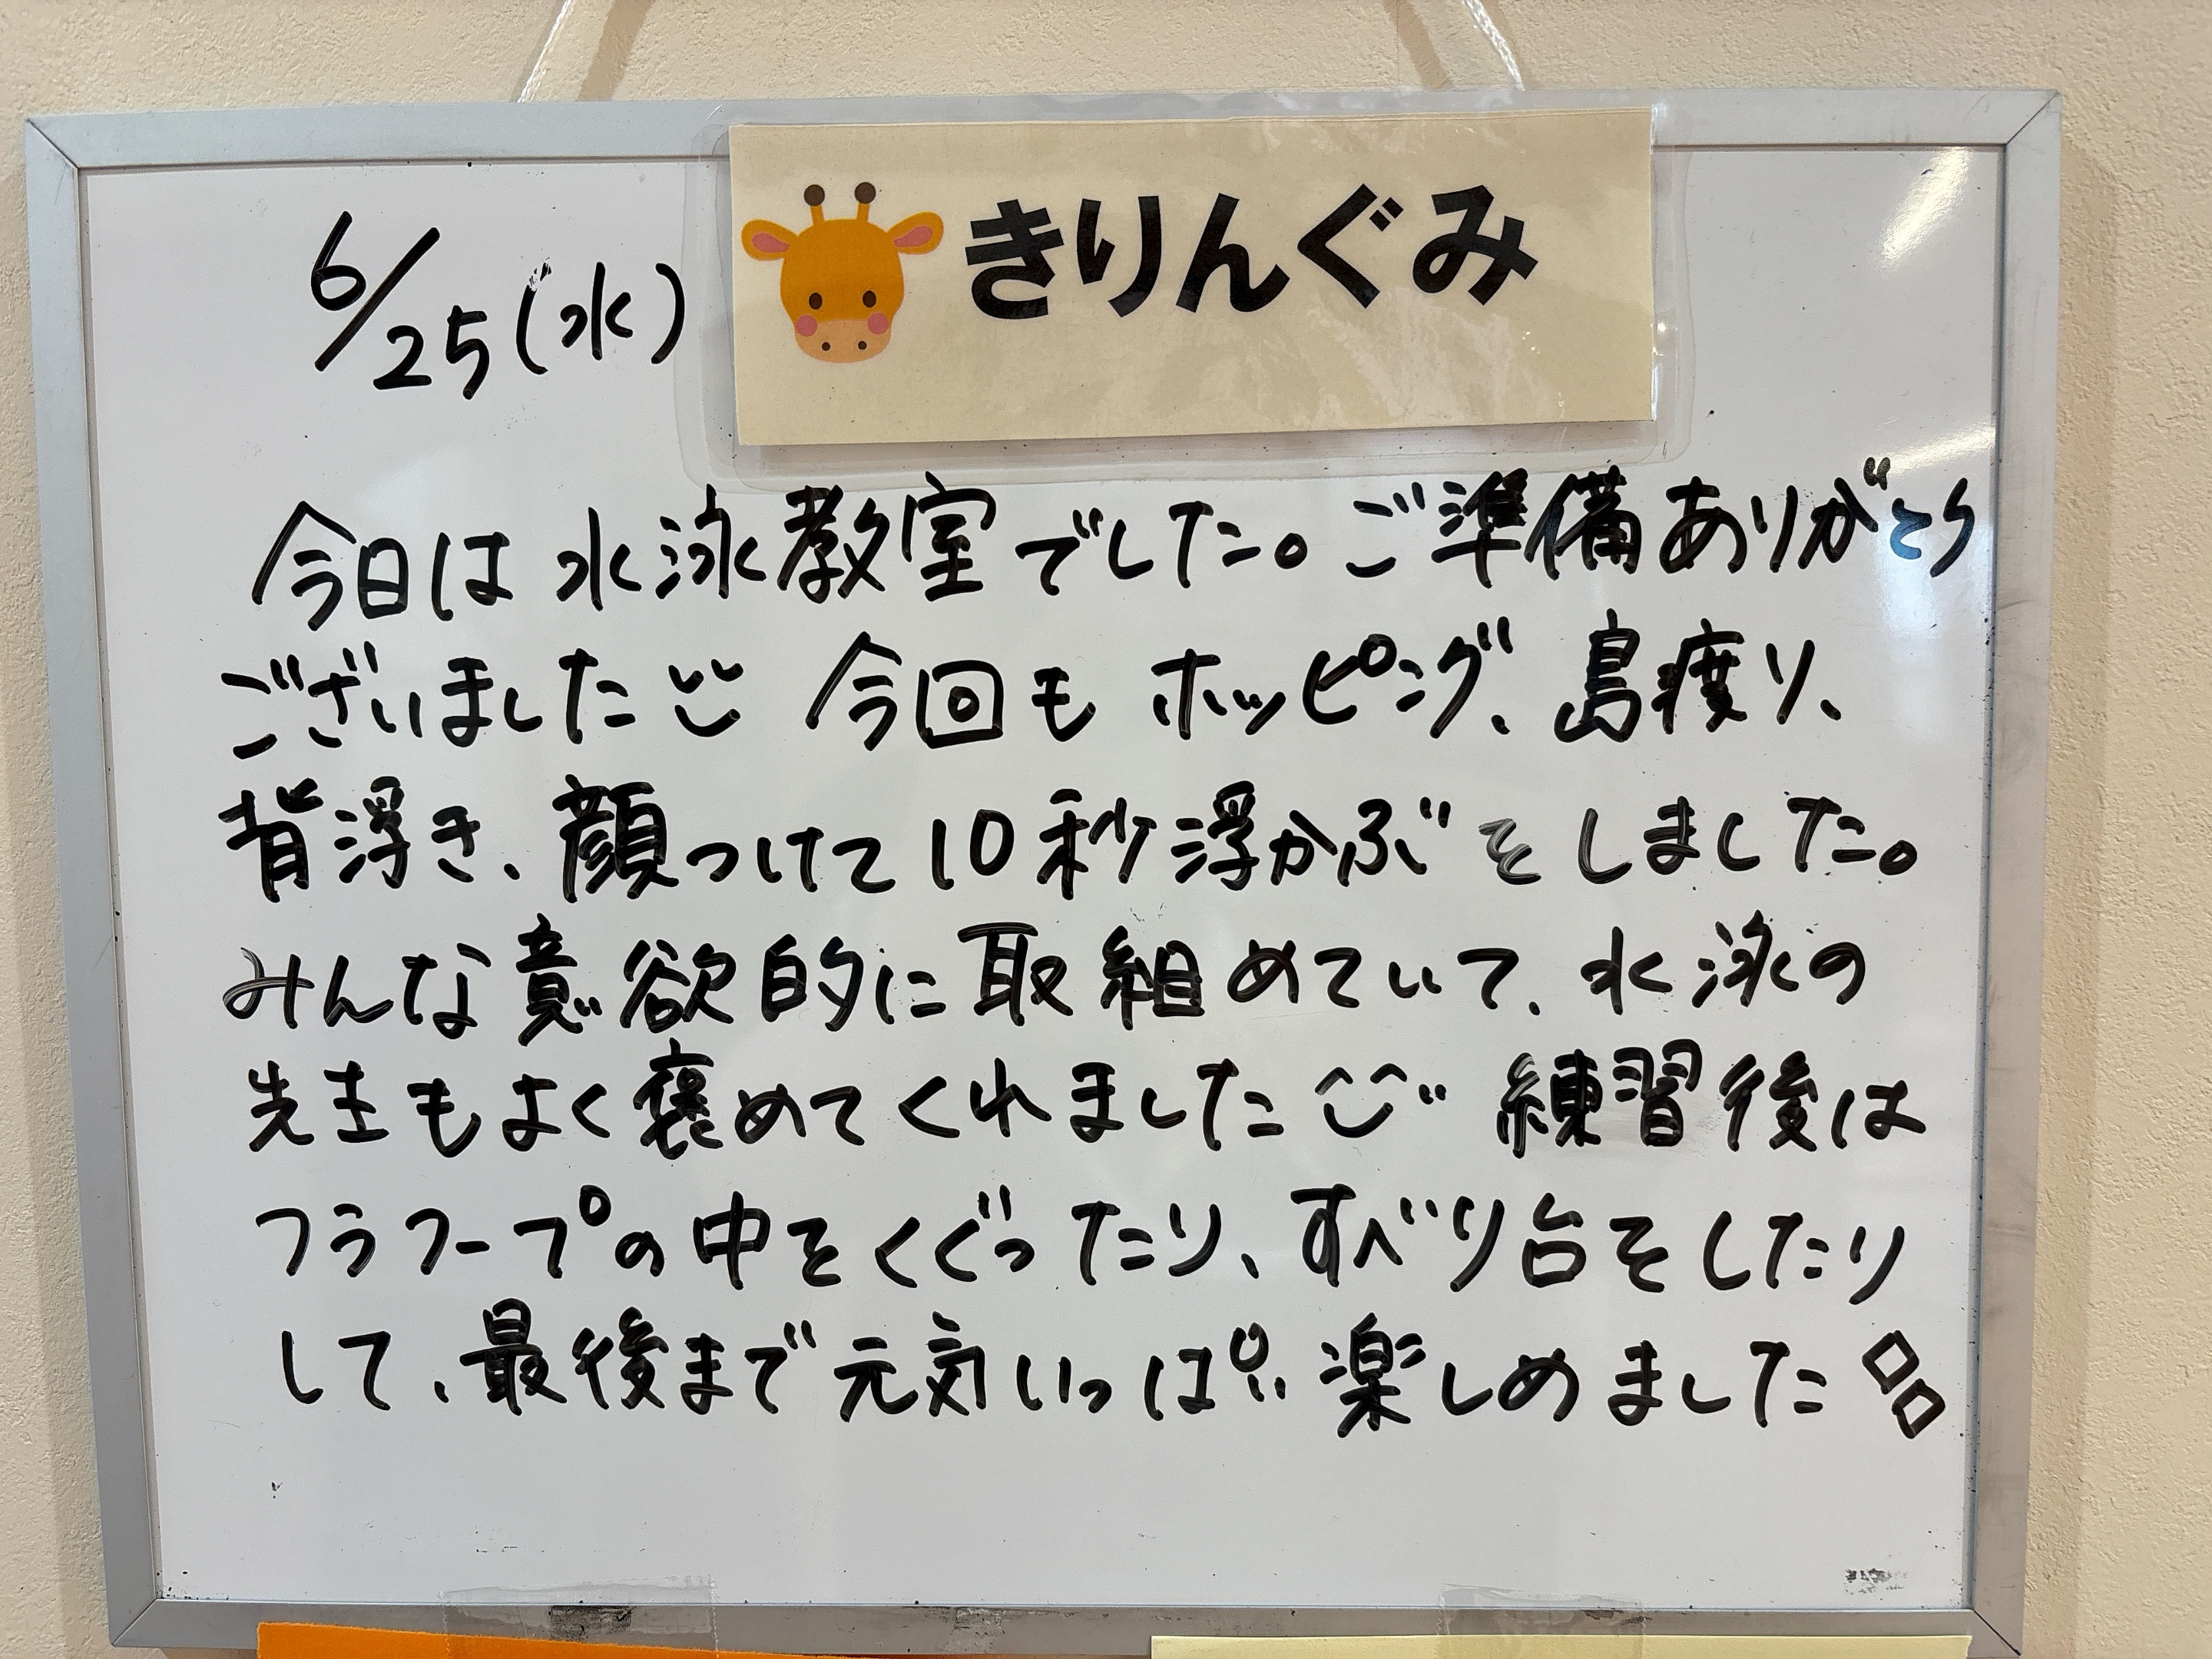 きりんぐみ
6/25(水)
今日は水泳教室でした。ご準備ありがとう
ございました 今回もホッピング、島渡り、
背浮き、顔つけて10秒浮かぶをしました。
みんな意欲的に取組めていて、水泳の
先生もよく褒めてくれました 練習後は
フラフープの中をくぐったり、すべり台をしたり
して、最後まで元気いっぱい楽しめました